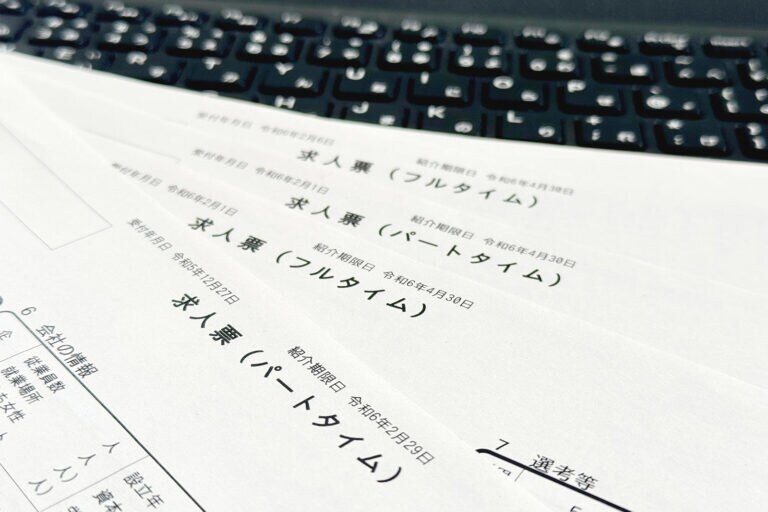 受付年月日 令和6年2月6日
求人票（フルタイム）
紹介期限日 令和6年4月30日
受付年月日 令和6年2月1日
求人票（パートタイム）
紹介期限日 令和6年4月30日
受付年月日 令和6年2月1日
求人票（フルタイム）
紹介期限日 令和6年4月30日
受付年月日 令和5年12月27日
求人票（パートタイム）
紹介期限日 令和6年2月29日
6 会社の情報
企
従業員数
就業場所
ち女性
人
人）
人）
設立年
資本
7 選考等